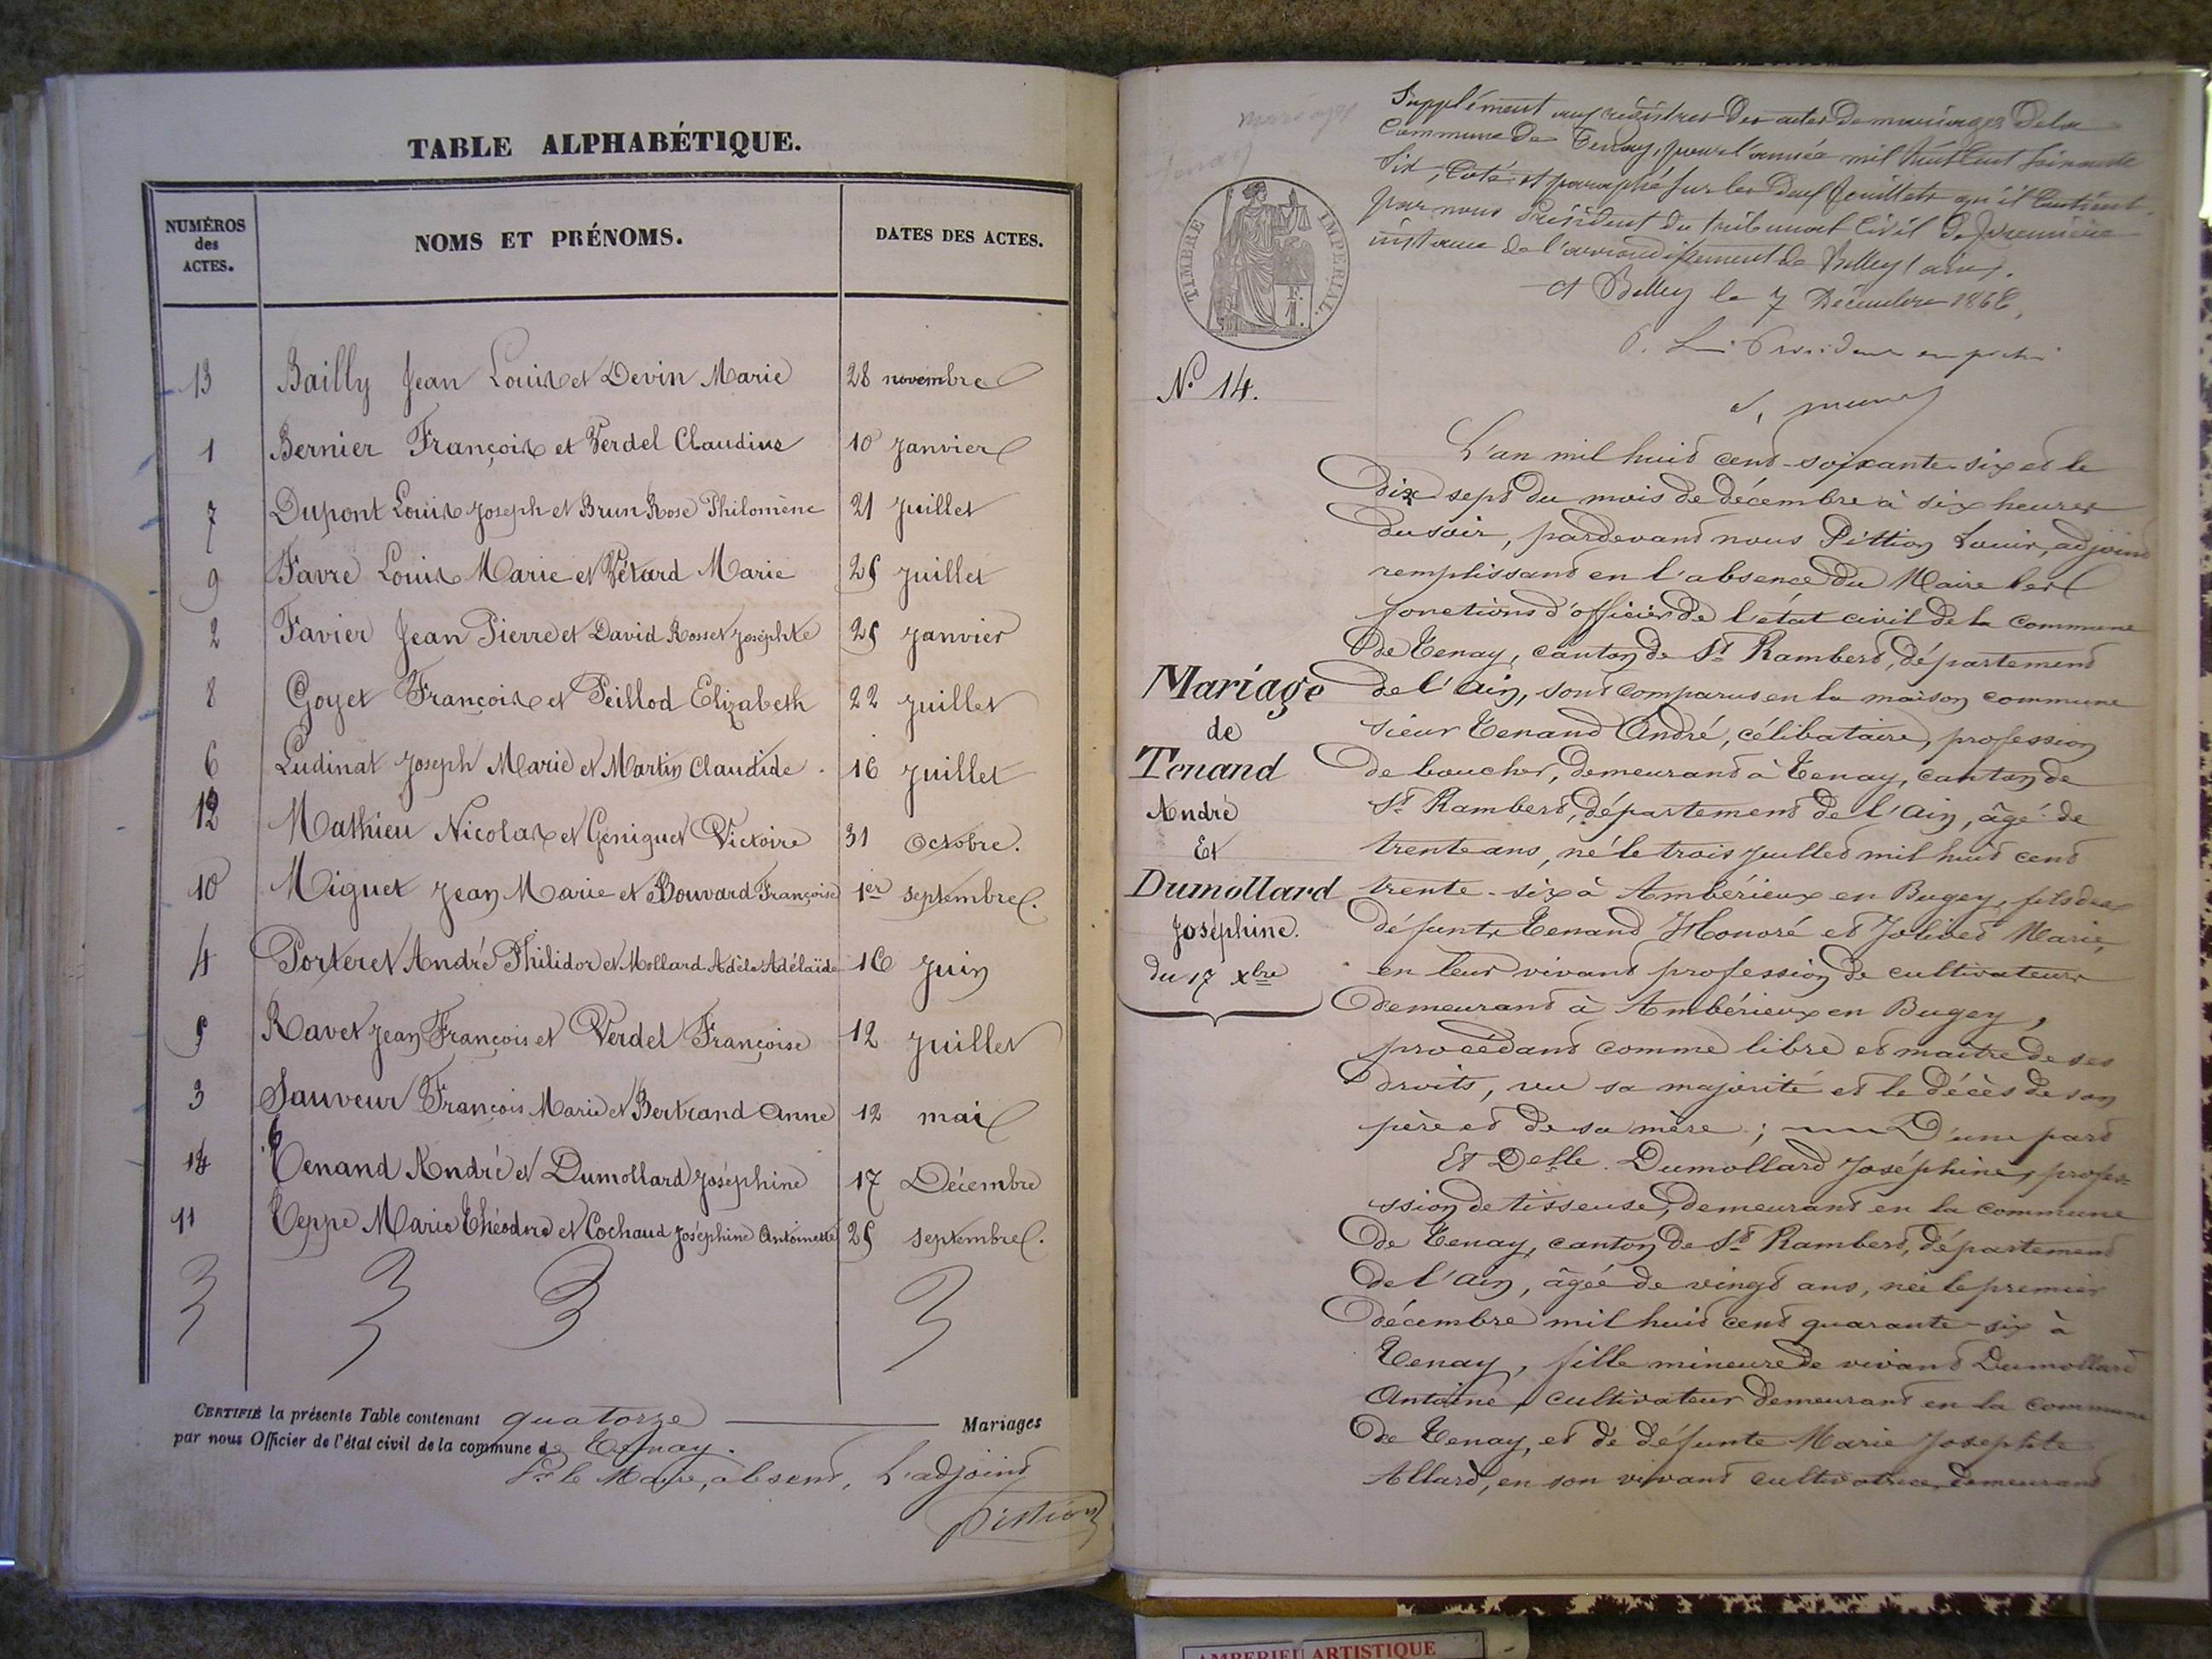 TABLE ALPHABÉTIQUE.
NUMÉROS
des
ACTES.
NOMS ET PRÉNOMS.
DATES DES ACTES.
13 Bailly Jean Louis et Devin Marie 28 novembre
1 Bernier François et Verdel Claudine 10 Janvier
7 Dupont Louis Joseph et Brun Rose Philomène 21 Juillet
9 Favre Louis Marie et Vétard Marie 25 Juillet
2 Favier Jean Pierre et David Rosset Josephte 25 Janvier
8 Goyet François et Peillod Elizabeth 22 Juillet
6 Ludinat Joseph Marie et Martin Claudide 16 Juillet
12 Mathieu Nicolas et Geniguet Victoire 31 Octobre.
10 Miguet Jean Marie et Bouvard Françoise 1er septembre.
4 Porteret André Philidor et Mollard Adèle Adélaïde 16 Juin
5 Ravet Jean François et Verdel Françoise 12 Juillet
3 Sauveur François Marie et Bertrand Anne 12 mai
14 Tenand André et Dumollard Joséphine 17 Décembre
11 Teppe Marie Théodore et Cochaud Joséphine Antoinette 25 septembre.
CERTIFIÉ la présente Table contenant quatorze Mariages
par nous Officier de l'état civil de la commune de Tenay.
Pr le Maire, absent, L'adjoint
Pittion
mariages
Tenay
Supplément aux registres des actes de mariages de la
Commune de Tenay, pour l'année mil huit cent soixante
six, coté et paraphé sur les deux feuillets qu'il contient
par nous Président du tribunal civil de première
instance de l'arrondissement de Belley (ain).
A Belley le 7 Décembre 1866.
P. Le Président empêché
TIMBRE IMPÉRIAL
F.
1.
N° 14.
L'an mil huit cent soixante-six et le
dix sept du mois de décembre à six heures
du soir, pardevant nous Pittion Louis, adjoint
remplissant en l'absence du Maire les
fonctions d'officier de l'état civil de la commune
de Tenay, canton de St Rambert, département
de l'Ain, sont comparus en la maison commune
sieur Tenand André, célibataire, profession
de boucher, demeurant à Tenay, canton de
St Rambert, département de l'Ain, âgé de
trente ans, né le trois Juillet mil huit cent
trente-six à Ambérieux en Bugey, fils des
défunts Tenand Honoré et Jolivet Marie,
en leur vivant profession de cultivateurs
demeurant à Ambérieux en Bugey,
procédant comme libre et maître de ses
droits, vu sa majorité et le décès de son
père et de sa mère ; D'une part
Et Delle. Dumollard Joséphine, profes-
ssion de tisseuse, demeurant en la commune
de Tenay, canton de St Rambert, département
de l'Ain, âgée de vingt ans, née le premier
décembre mil huit cent quarante-six à
Tenay, fille mineure de vivant Dumollard
Antoine, cultivateur demeurant en la commune
de Tenay, et de défunte Marie Josephte
Allard, en son vivant cultivatrice demeurant
Mariage
de
Tenand
André
Et
Dumollard
Joséphine.
du 17 Xbre
AMBERIEU ARTISTIQUE